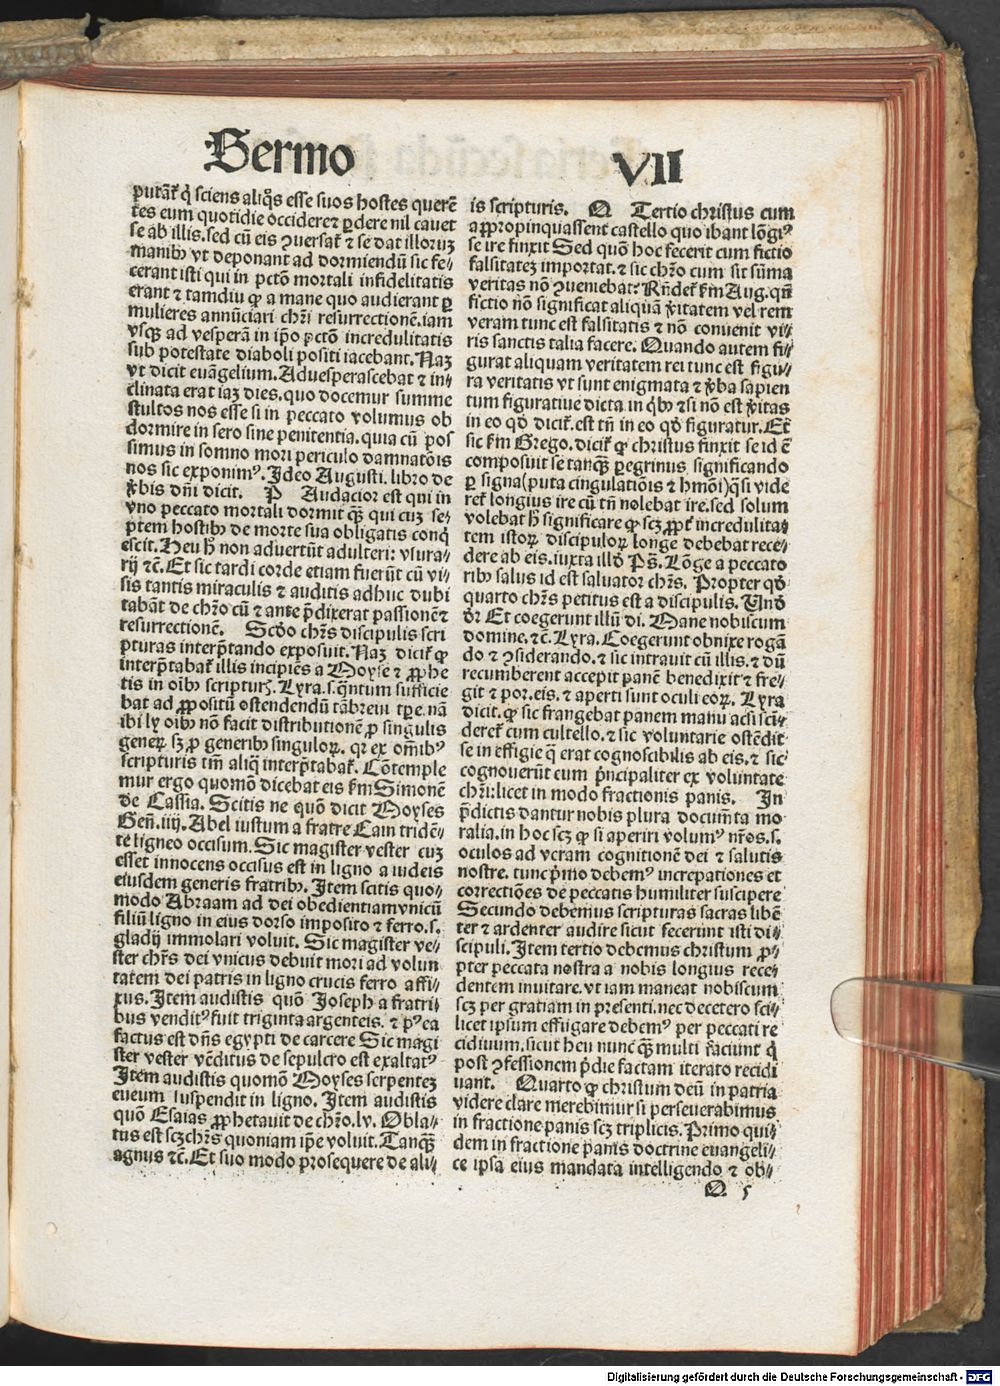 Sermo VII
putāt̄ q̇ sciens aliq̊s esse suos hostes querē
tes eum quotidie occidere ⁊ ꝑdere nil cauet
se ab illis. sed cū eis ꝯuersat̄ ⁊ se dat illoruꝫ
manibꝰ vt deponant ad dormiendū sic fe⸗
cerant isti qui in pctō mortali infidelitatis
erant ⁊ tamdiu ꝙ a mane quo audierant ꝑ
mulieres annūciari chr̄i resurrectionē. iam
vsqꝫ ad vesperā in ip̄o pctō incredulitatis
sub potestate diaboli positi iacebant. Naꝫ
vt dicit euāgelium. Aduesperascebat ⁊ in⸗
clinata erat iaꝫ dies. quo docemur summe
stultos nos esse si in peccato volumus ob
dormire in sero sine penitentia. quia cū pos
simus in somno mori periculo damnatōis
nos sic exponimꝰ. Ideo Augusti. libro de
v̄bis dn̄i dicit. P Audacior est qui in
vno peccato mortali dormit qꝫ̄ qui cuꝫ se⸗
ptem hostibꝰ de morte sua obligatis conq̇
escit. Heu h̄ non aduertūt adulteri: vsura⸗
rij ⁊c̄. Et sic tardi corde etiam fuerūt cū vi⸗
sis tantis miraculis ⁊ auditis adhuc dubi
tabāt de chr̄o cū ⁊ ante p̄dixerat passionē ⁊
resurrectionē. Scd̄o chr̄s discipulis scri
pturas interp̄tando exposuit. Naꝫ dicit̄ ꝙ
interp̄tabat̄ illis incipiēs a Moyse ⁊ ꝓphe
tis in oībꝰ scripturꝭ. Lyra. s. q̄ntum sufficie
bat ad ꝓpositū ostendendū tābreui tꝑe. nā
ibi ly oībꝰ nō facit distributionē ꝓ singulis
generꝝ sꝫ ꝓ generibꝰ singuloꝝ. qꝛ ex om̄ibꝰ
scripturis tm̄ aliq̄ interp̄tabat̄. Cōtemple
mur ergo quomō dicebat eis ẜm Simonē
de Cassia. Scitis ne quō dicit Moyses
Gen̄. iiij. Abel iustum a fratre Cain tridē⸗
te ligneo occisum. Sic magister vester cuꝫ
esset innocens occisus est in ligno a iudeis
eiusdem generis fratribꝰ. Item scitis quo⸗
modo Abraam ad dei obedientiam vnicū
filiū ligno in eius dorso imposito ⁊ ferro. s.
gladij immolari voluit. Sic magister ve⸗
ster chr̄s dei vnicus debuit mori ad volun
tatem dei patris in ligno crucis ferro affi⸗
xus. Item audistis quō Joseph a fratri⸗
bus venditꝰ fuit triginta argenteis. ⁊ pꝰea
factus est dn̄s egypti de carcere Sic magi
ster vester vēditus de sepulcro est exaltatꝰ
Item audistis quomō Moyses serpenteꝫ
eneum suspendit in ligno. Item audistis
quō Esaias ꝓphetauit de chr̄o. lv. Obla⸗
tus est scꝫ chr̄s quoniam ip̄e voluit. Tanqꝫ̄
agnus ⁊c̄. Et suo modo prosequere de ali⸗
is scripturis. Q Tertio christus cum
appropinquassent castello quo ibant lōgiꝰ
se ire finxit Sed quō hoc fecerit cum fictio
falsitateꝫ importat. ⁊ sic chr̄o cum sit sūma
veritas nō ꝯueniebat: Rn̄det̄ ẜm Aug. qn̄
fictio nō significat aliquā v̄itatem vel rem
veram tunc est falsitatis ⁊ nō conuenit vi⸗
ris sanctis talia facere. Quando autem fi⸗
gurat aliquam veritatem rei tunc est figu⸗
ra veritatis vt sunt enigmata ⁊ v̄ba sapien
tum figuratiue dicta in q̇bꝰ ⁊ si nō est v̄itas
in eo qd̓ dicit̄. est tn̄ in eo qd̓ figuratur. Et
sic ẜm Grego. dicit̄ ꝙ christus finxit se id ē
composuit se tanqꝫ̄ ꝑegrinus significando
ꝑ signa (puta cingulatiōis ⁊ hm̄ōi) q̄si vide
ret̄ longius ire cū tn̄ nolebat ire. sed solum
volebat h̄ significare ꝙ scꝫ ꝓpt̄ incredulita⸗
tem istoꝝ discipuloꝝ longe debebat rece⸗
dere ab eis. iuxta illd̓ Ps̄. Lōge a peccato
ribꝰ salus id est saluator chr̄s. Propter qd̓
quarto chr̄s petitus est a discipulis. Vnd̓
dr̄ Et coegerunt illū di. Mane nobiscum
domine. ⁊c̄. Lyra. Coegerunt obnixe rogā
do ⁊ ꝯsiderando. ⁊ sic intrauit cū illis. ⁊ dū
recumberent accepit panē benedixit ⁊ fre⸗
git ⁊ por. eis. ⁊ aperti sunt oculi eoꝝ. Lyra
dicit. ꝙ sic frangebat panem manu acsi scī⸗
deret̄ cum cultello. ⁊ sic voluntarie ostēdit
se in effigie q̄ erat cognoscibilis ab eis. ⁊ sic
cognouerūt cum p̄ncipaliter ex voluntate
chr̄i: licet in modo fractionis panis. In
p̄dictis dantur nobis plura documēta mo
ralia. in hoc scꝫ ꝙ si aperiri volumꝰ nr̄os. s.
oculos ad veram cognitionē dei ⁊ salutis
nostre. tunc p̄mo debemꝰ increpationes et
correctiōes de peccatis humiliter suscipere
Secundo debemus scripturas sacras libē
ter ⁊ ardenter audire sicut fecerunt isti di⸗
scipuli. Item tertio debemus christum ꝓ⸗
pter peccata nostra a nobis longius rece⸗
dentem inuitare. vt iam maneat nobiscum
scꝫ per gratiam in presenti. nec decetero sci⸗
licet ipsum effugare debemꝰ per peccati re
cidiuum. sicut heu nunc qꝫ̄ multi faciunt q̇
post ꝯfessionem p̄die factam iterato recidi
uant. Quarto ꝙ christum deū in patria
videre clare merebimur si perseuerabimus
in fractione panis scꝫ triplicis. Primo qui⸗
dem in fractione panis doctrine euangeli⸗
ce ipsa eius mandata intelligendo ⁊ ob⸗
Q 5
Digitalisierung gefördert durch die Deutsche Forschungsgemeinschaft - DFG